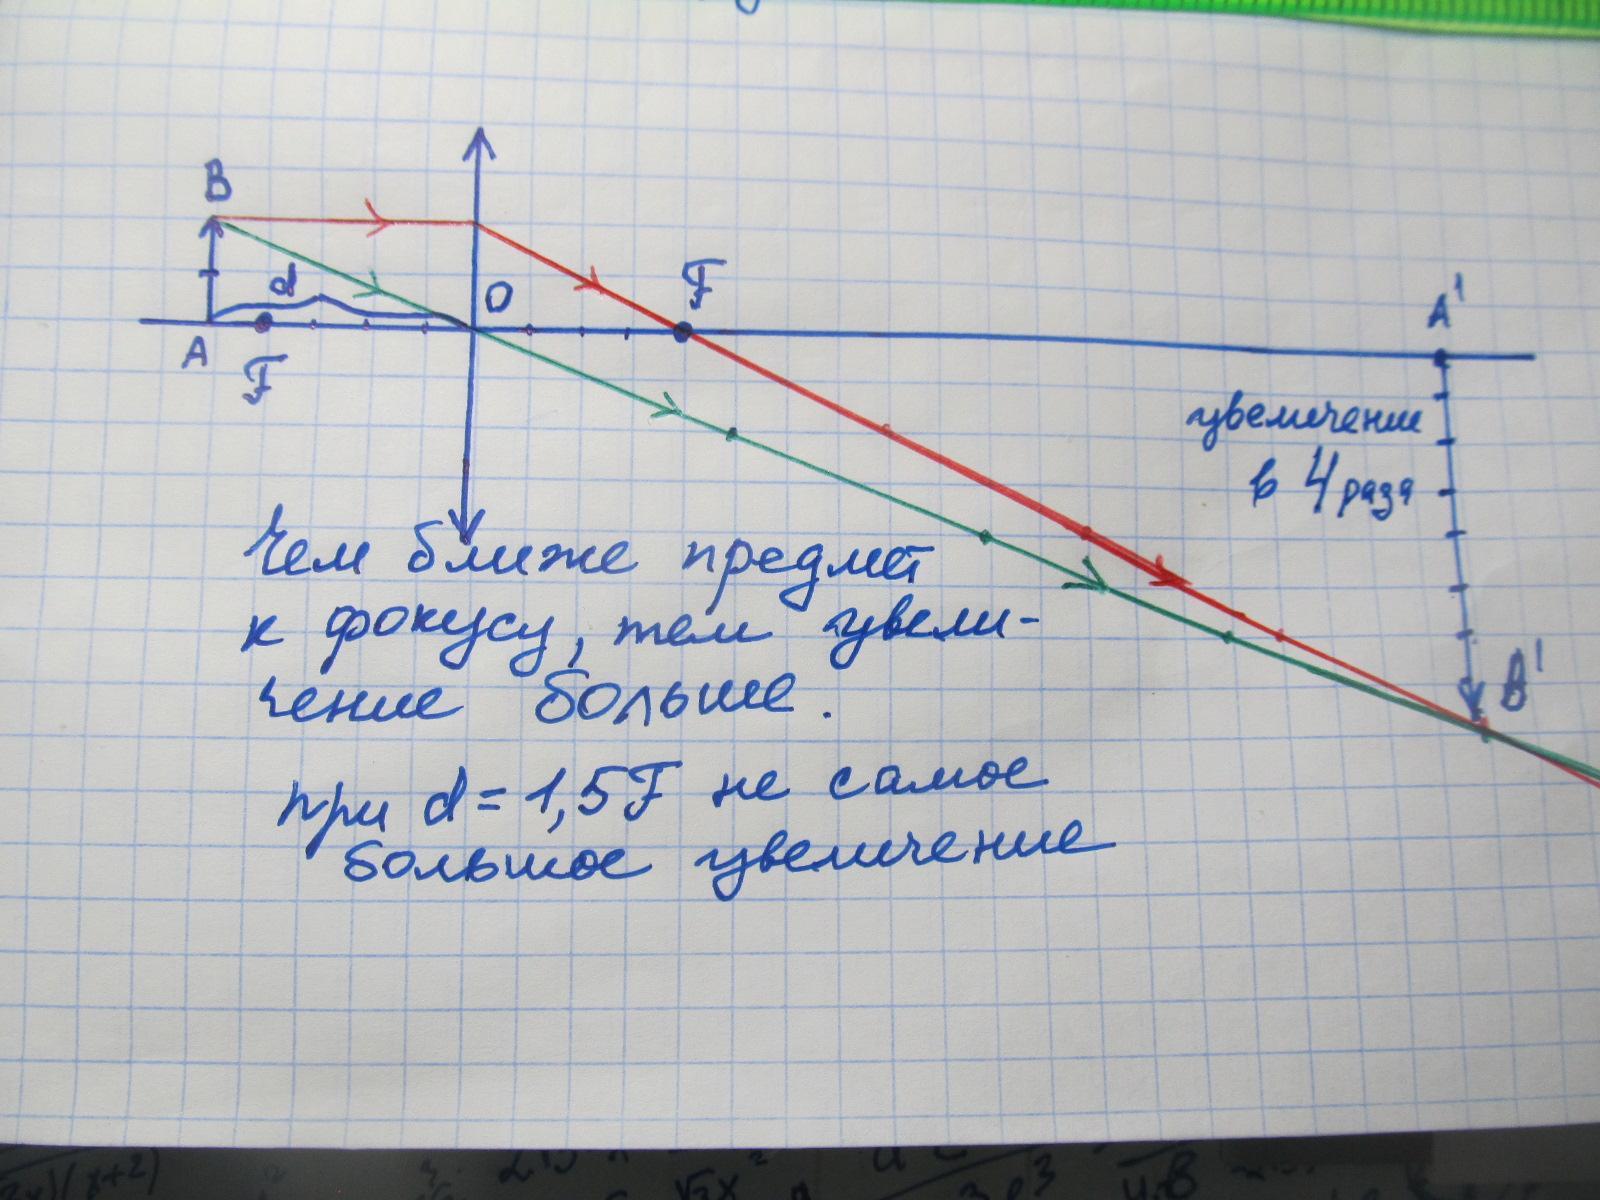 B
d
O
F
A'
A
F
увеличение
в 4 раза
Чем ближе предмет
к фокусу, тем увели-
чение больше.
B'
при d = 1,5F не самое
большое увеличение